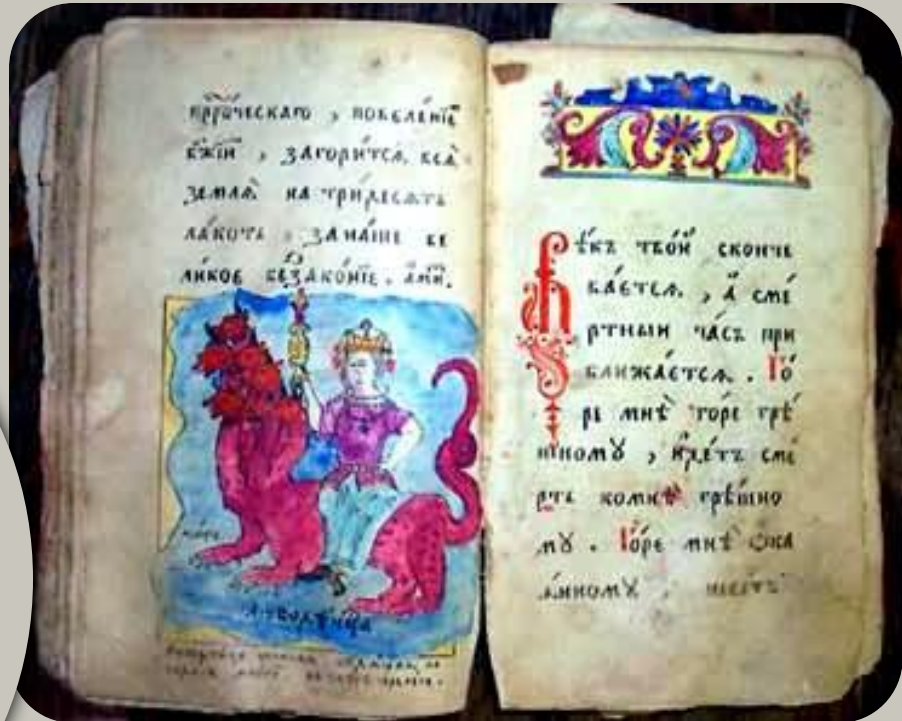 прⷪ҇ро́ческагѡ , повелѣ́нїе
бж҃їи , загори́тсѧ всѧ̀
землѧ̀ на три́десѧть
ла́котъ . за на́ше ве
ли́кое беззако́нїе . ами́.
Вѣ́къ тво́й сконче
ва́етсѧ , а҆ сме́
ртныи ча́съ при
ближа́етсѧ . Го́
ре мнѣ̀ го́ре грѣ́
шному , и҆де́тъ сме́
рть комнѣ̀ грѣ́шно
му . Го́ре мнѣ̀ ѻ҆ка
ѧ́нному ,